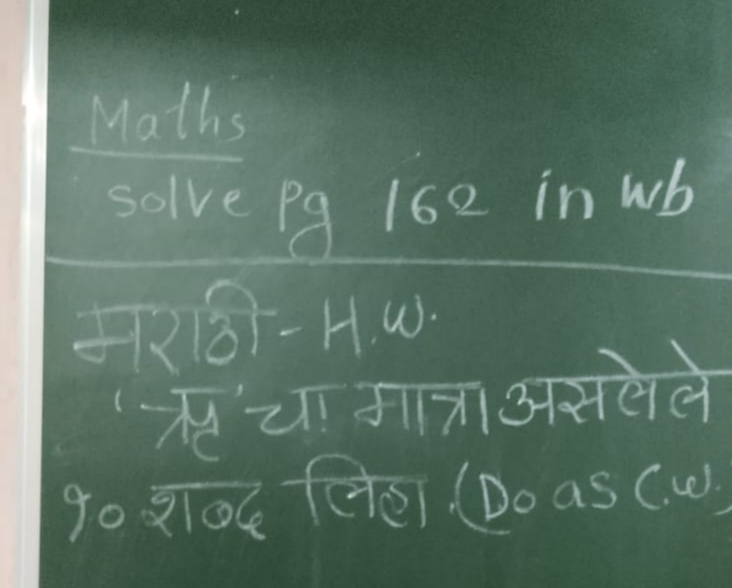 Maths
solve Pg 162 in wb
मराठी - H.W.
'ऋ' चा मात्रा असलेले
१० शब्द लिहा. (Do as C.W.)